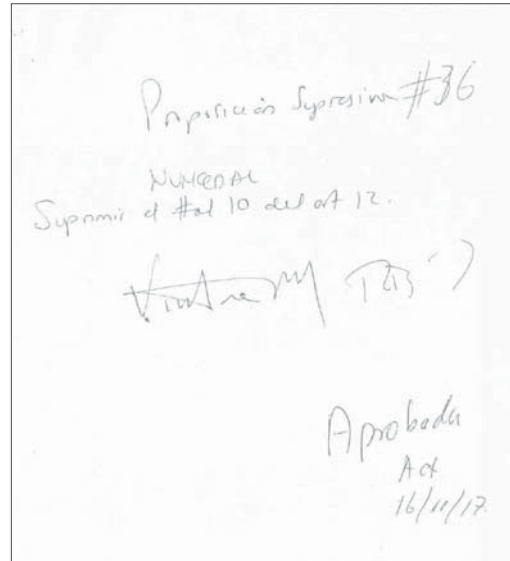 Proposición Supresiva #36
NUMERAL
Suprimir el #al 10 del art 12.
Aprobada
Act
16/11/17